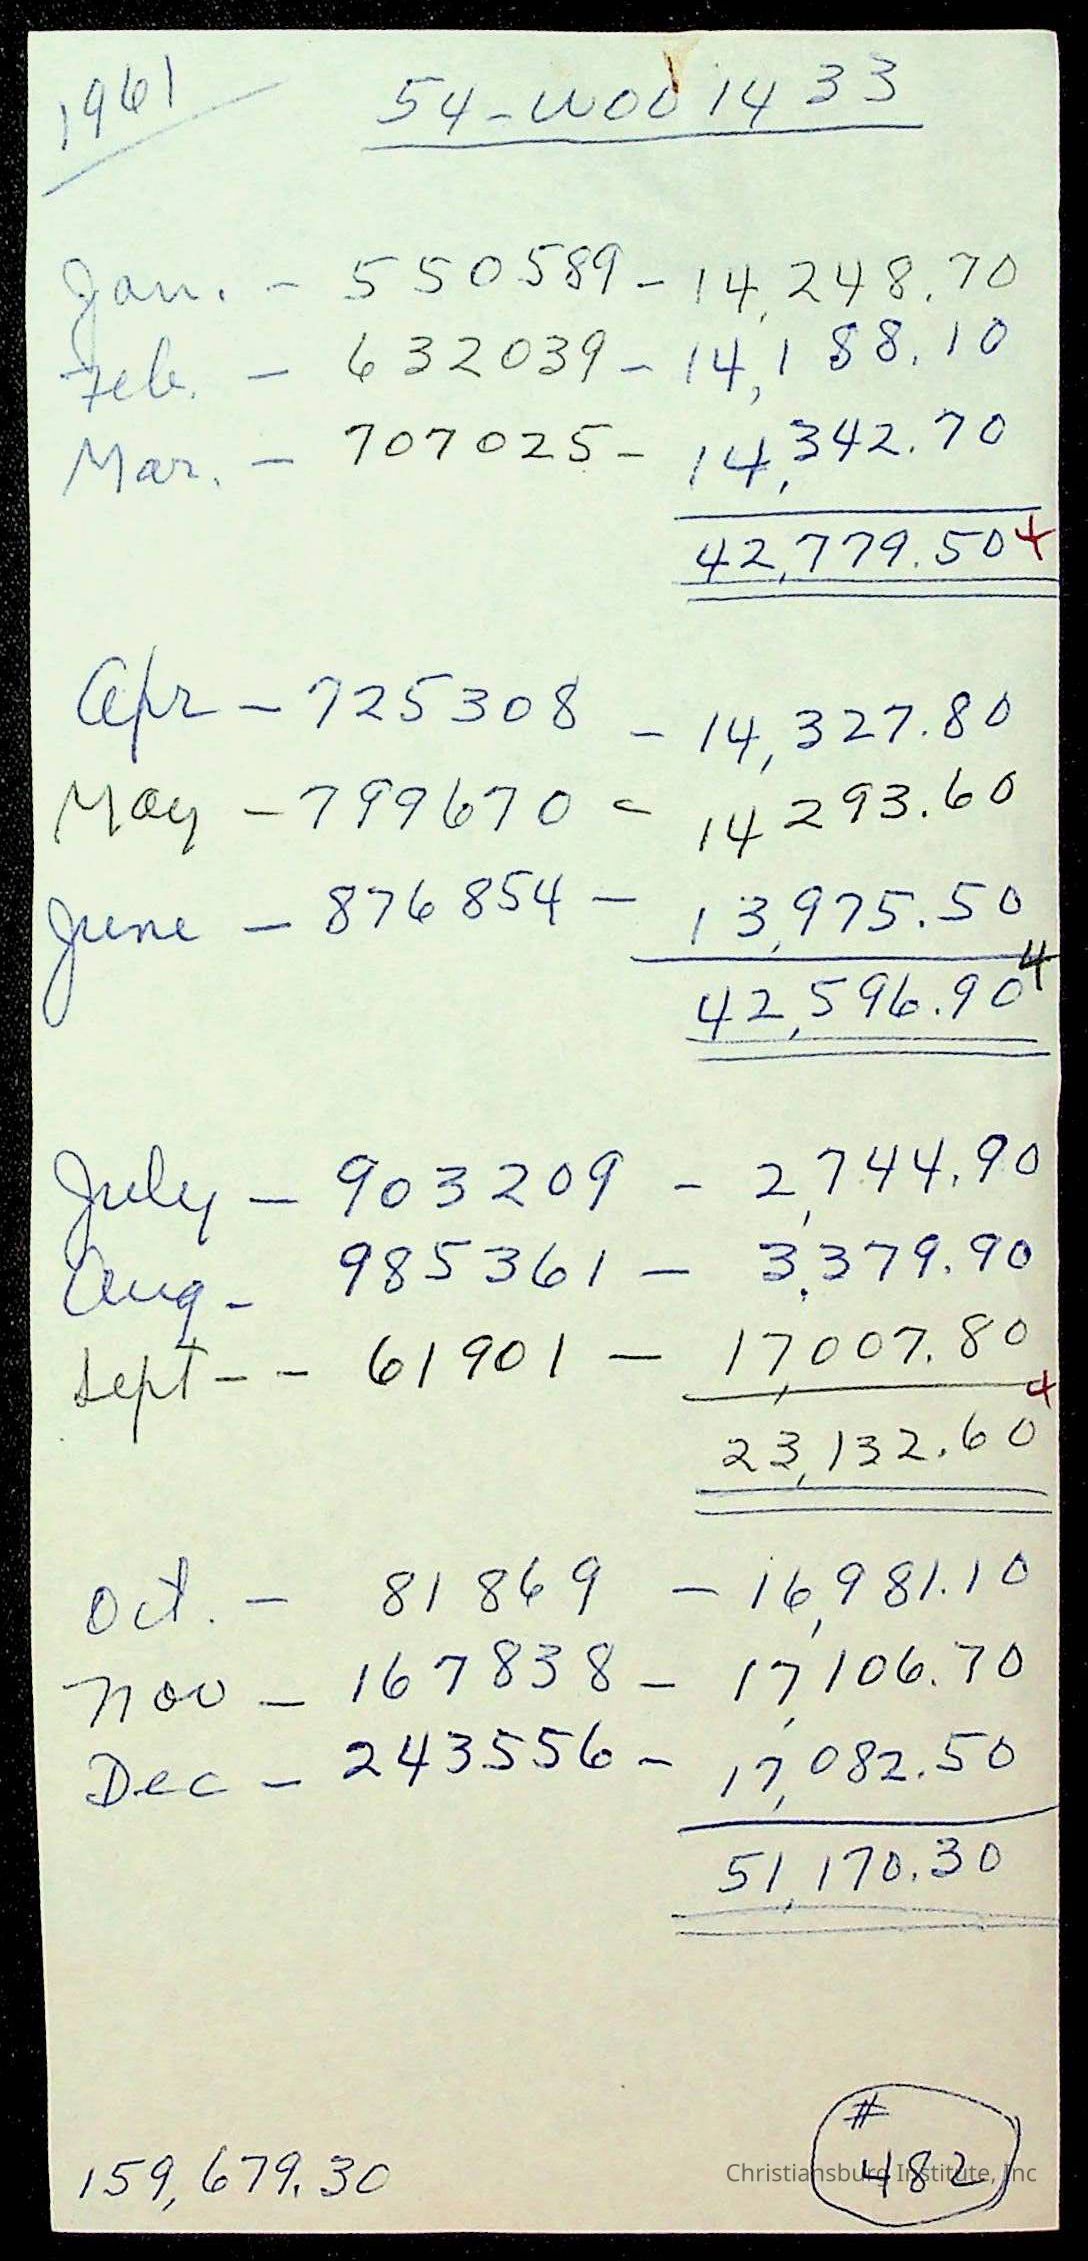 1961
54-WOO 1433
Jan. - 550589 - 14,248.70
Feb. - 632039 - 14,188.10
Mar. - 707025 - 14,342.70
42,779.50 4
Apr - 725308 - 14,327.80
May - 799670 - 14 293.60
June - 876854 - 13,975.50
42,596.90 4
July - 903209 - 2,744.90
Aug - 985361 - 3,379.90
Sept - - 61901 - 17,007.80
23,132.60 4
Oct. - 81869 - 16,981.10
Nov - 167838 - 17,106.70
Dec - 243556 - 17,082.50
51,170.30
#
482
159,679.30
Christiansburg Institute, Inc